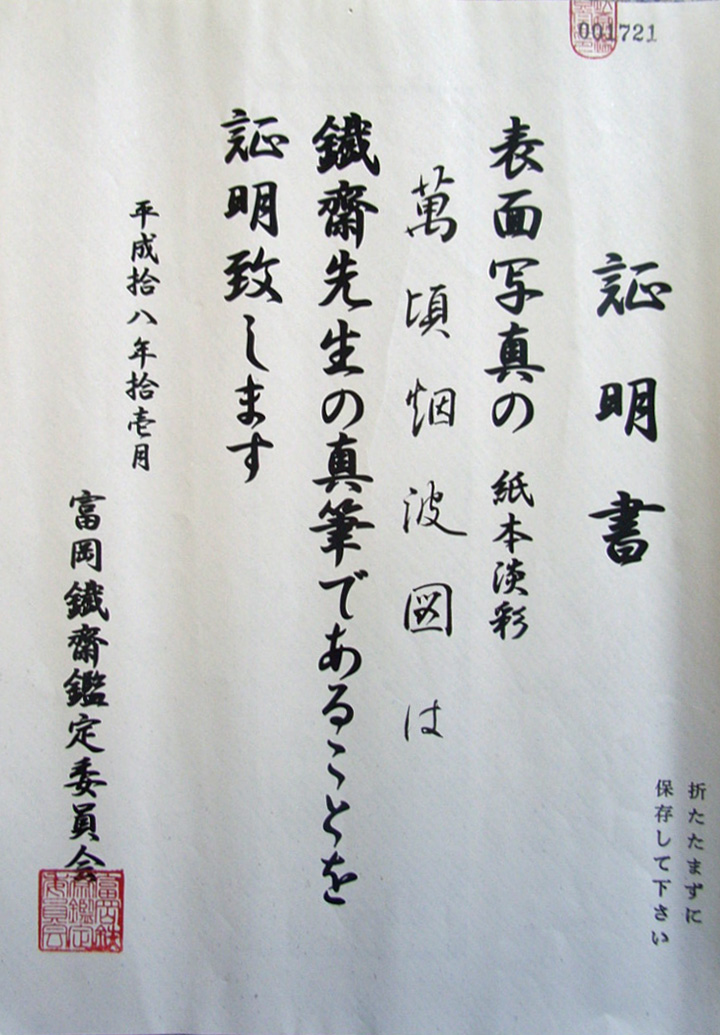 001721
証明書
表面写真の 紙本淡彩
萬頃烟波図は
鐵齋先生の真筆であることを
証明致します
平成拾八年拾壱月
富岡鐵齋鑑定委員会
折たたまずに
保存して下さい